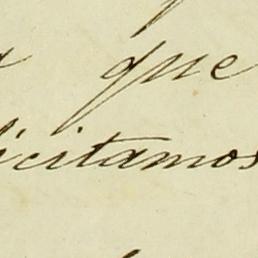 que
licitamos